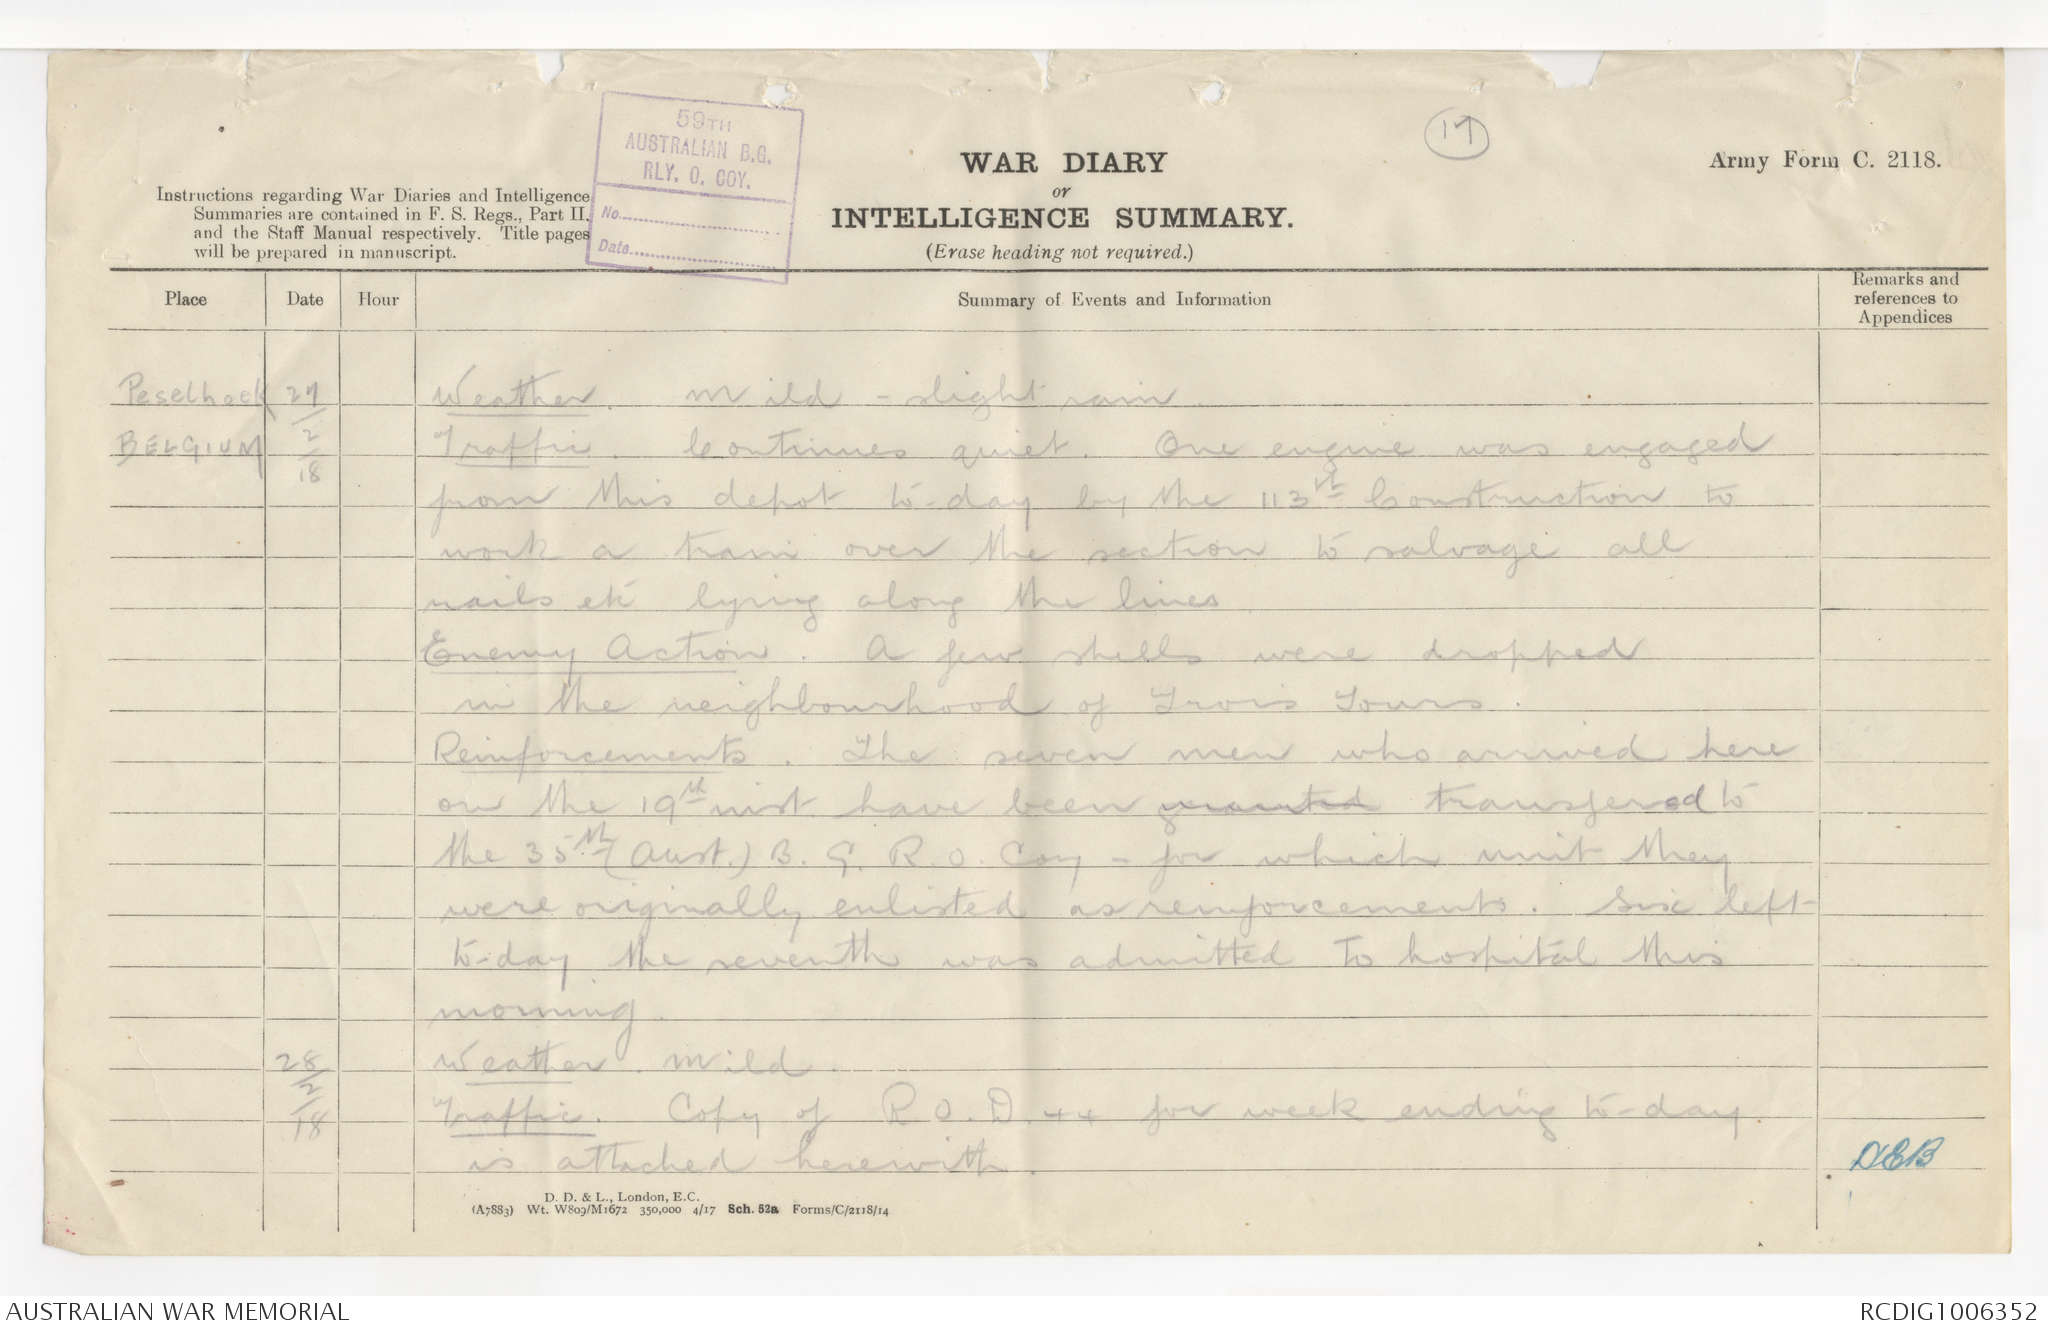 59TH
AUSTRALIAN B.G.
RLY. O. COY.
No.
Date
17
WAR DIARY
or
INTELLIGENCE SUMMARY.
(Erase heading not required.)
Army Form C. 2118.
Instructions regarding War Diaries and Intelligence
Summaries are contained in F. S. Regs., Part II.
and the Staff Manual respectively. Title pages
will be prepared in manuscript.
Place Date Hour Summary of Events and Information Remarks and references to Appendices
Peselhoek 27 Weather. Mild - slight rain
BELGIUM 2 Traffic. Continues quiet. One engine was engaged
18 from this depot to-day by the 113th Construction to
work a train over the section to salvage all
rails etc lying along the lines
Enemy Action. A few shells were dropped
in the neighbourhood of Trois Tours.
Reinforcements. The seven men who arrived here
on the 19th inst. have been transfered to
the 35th (Aust.) B. G. R. O. Coy - for which unit they
were originally enlisted as reinforcements. Six left
to-day the seventh was admitted to hospital this
morning.
28 Weather. Mild.
2
18 Traffic. Copy of R. O. D 44 for week ending to-day
is attached herewith.
DEB
D. D. & L., London, E.C.
(A7883) Wt. W809/M1672 350,000 4/17 Sch. 52a Forms/C/2118/14
AUSTRALIAN WAR MEMORIAL
RCDIG1006352